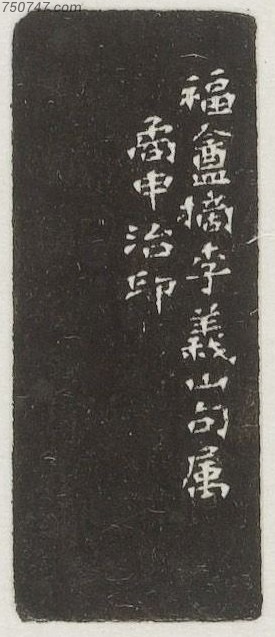 750747.com
福盦摘李義山句属
矞申治印